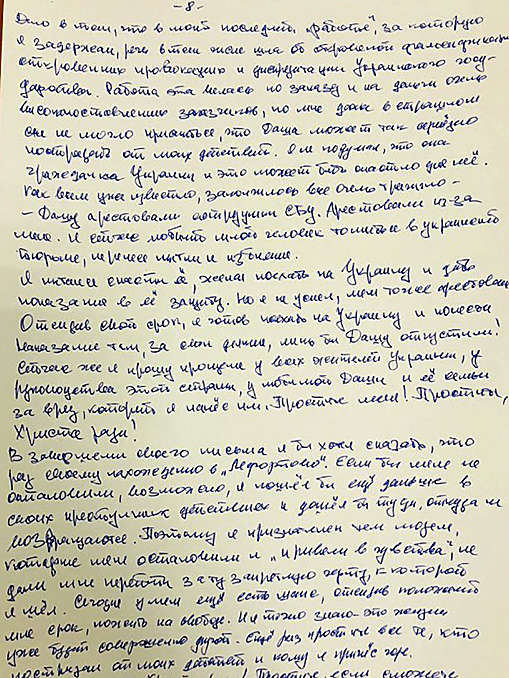 - 8 -
Дело в том, что в моей последней "работе", за которую
я задержан, речь в том числе шла об откровенной фальсификации,
откровенных провокациях и дискредитации Украинского госу-
дарства. Работа эта велась по заказу и на деньги очень
высокопоставленных заказчиков, но мне даже в страшном
сне не могло присниться, что Даша может так серьёзно
пострадать от моих действий. Я не подумал, что она
гражданка Украины и это может быть опасно для неё.
Как всем уже известно, закончилось всё очень трагично -
- Дашу арестовали сотрудники СБУ. Арестовали из-за
меня. И сейчас любимый мной человек томится в украинской
тюрьме, перенеся пытки и лишения.
Я пытался спасти её, желая поехать на Украину и дать
показания в её защиту. Но я не успел, меня тоже арестовали.
Отсидев свой срок, я готов поехать на Украину и понести
наказание там, за свои деяния, лишь бы Дашу отпустили!
Сейчас же я прошу прощения у всех жителей Украины, у
руководства этой страны, у любимой Даши и её семьи
за вред, который я нанёс им. Простите меня! Простите,
Христа ради!
В завершении своего письма я бы хотел сказать, что
рад своему нахождению в "Лефортово". Если бы меня не
остановили, возможно, я пошёл бы ещё дальше в
своих преступных действиях и дошёл бы туда, откуда не
возвращаются. Поэтому я признателен тем людям,
которые меня остановили и "привели в чувства", не
дали мне перейти за ту запретную черту, к которой
я шёл. Сегодня у меня ещё есть шанс, отсидев положенный
мне срок, пожить на свободе. И я точно знаю - это жизнь
уже будет совершенно другой. Ещё раз простите все те, кто
пострадал от моих действий и кому я принёс горе.
Простите, если сможете